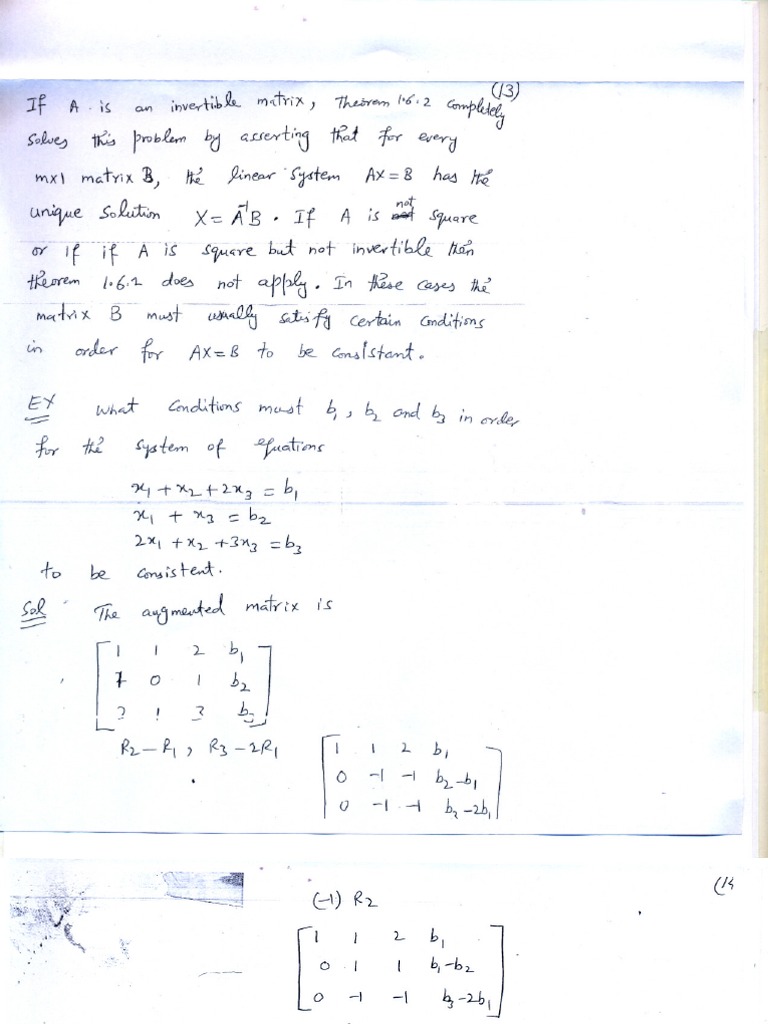 (13)
If A is an invertible matrix, Theorem 1.6.2 completely
solves this problem by asserting that for every
mx1 matrix B, the linear system AX=B has the
unique solution X = A⁻¹B. If A is not square
or if if A is square but not invertible then
theorem 1.6.2 does not apply. In these cases the
matrix B must usually satisfy certain conditions
in order for AX=B to be consistant.
EX What conditions must b₁, b₂ and b₃ in order
for the system of equations
x₁ + x₂ + 2x₃ = b₁
x₁ + x₃ = b₂
2x₁ + x₂ + 3x₃ = b₃
to be consistent.
Sol The augmented matrix is
1 1 2 b₁
1 0 1 b₂
2 1 3 b₃
R₂ - R₁, R₃ - 2R₁
1 1 2 b₁
0 -1 -1 b₂-b₁
0 -1 -1 b₃-2b₁
(14
(-1) R₂
1 1 2 b₁
0 1 1 b₁-b₂
0 -1 -1 b₃-2b₁